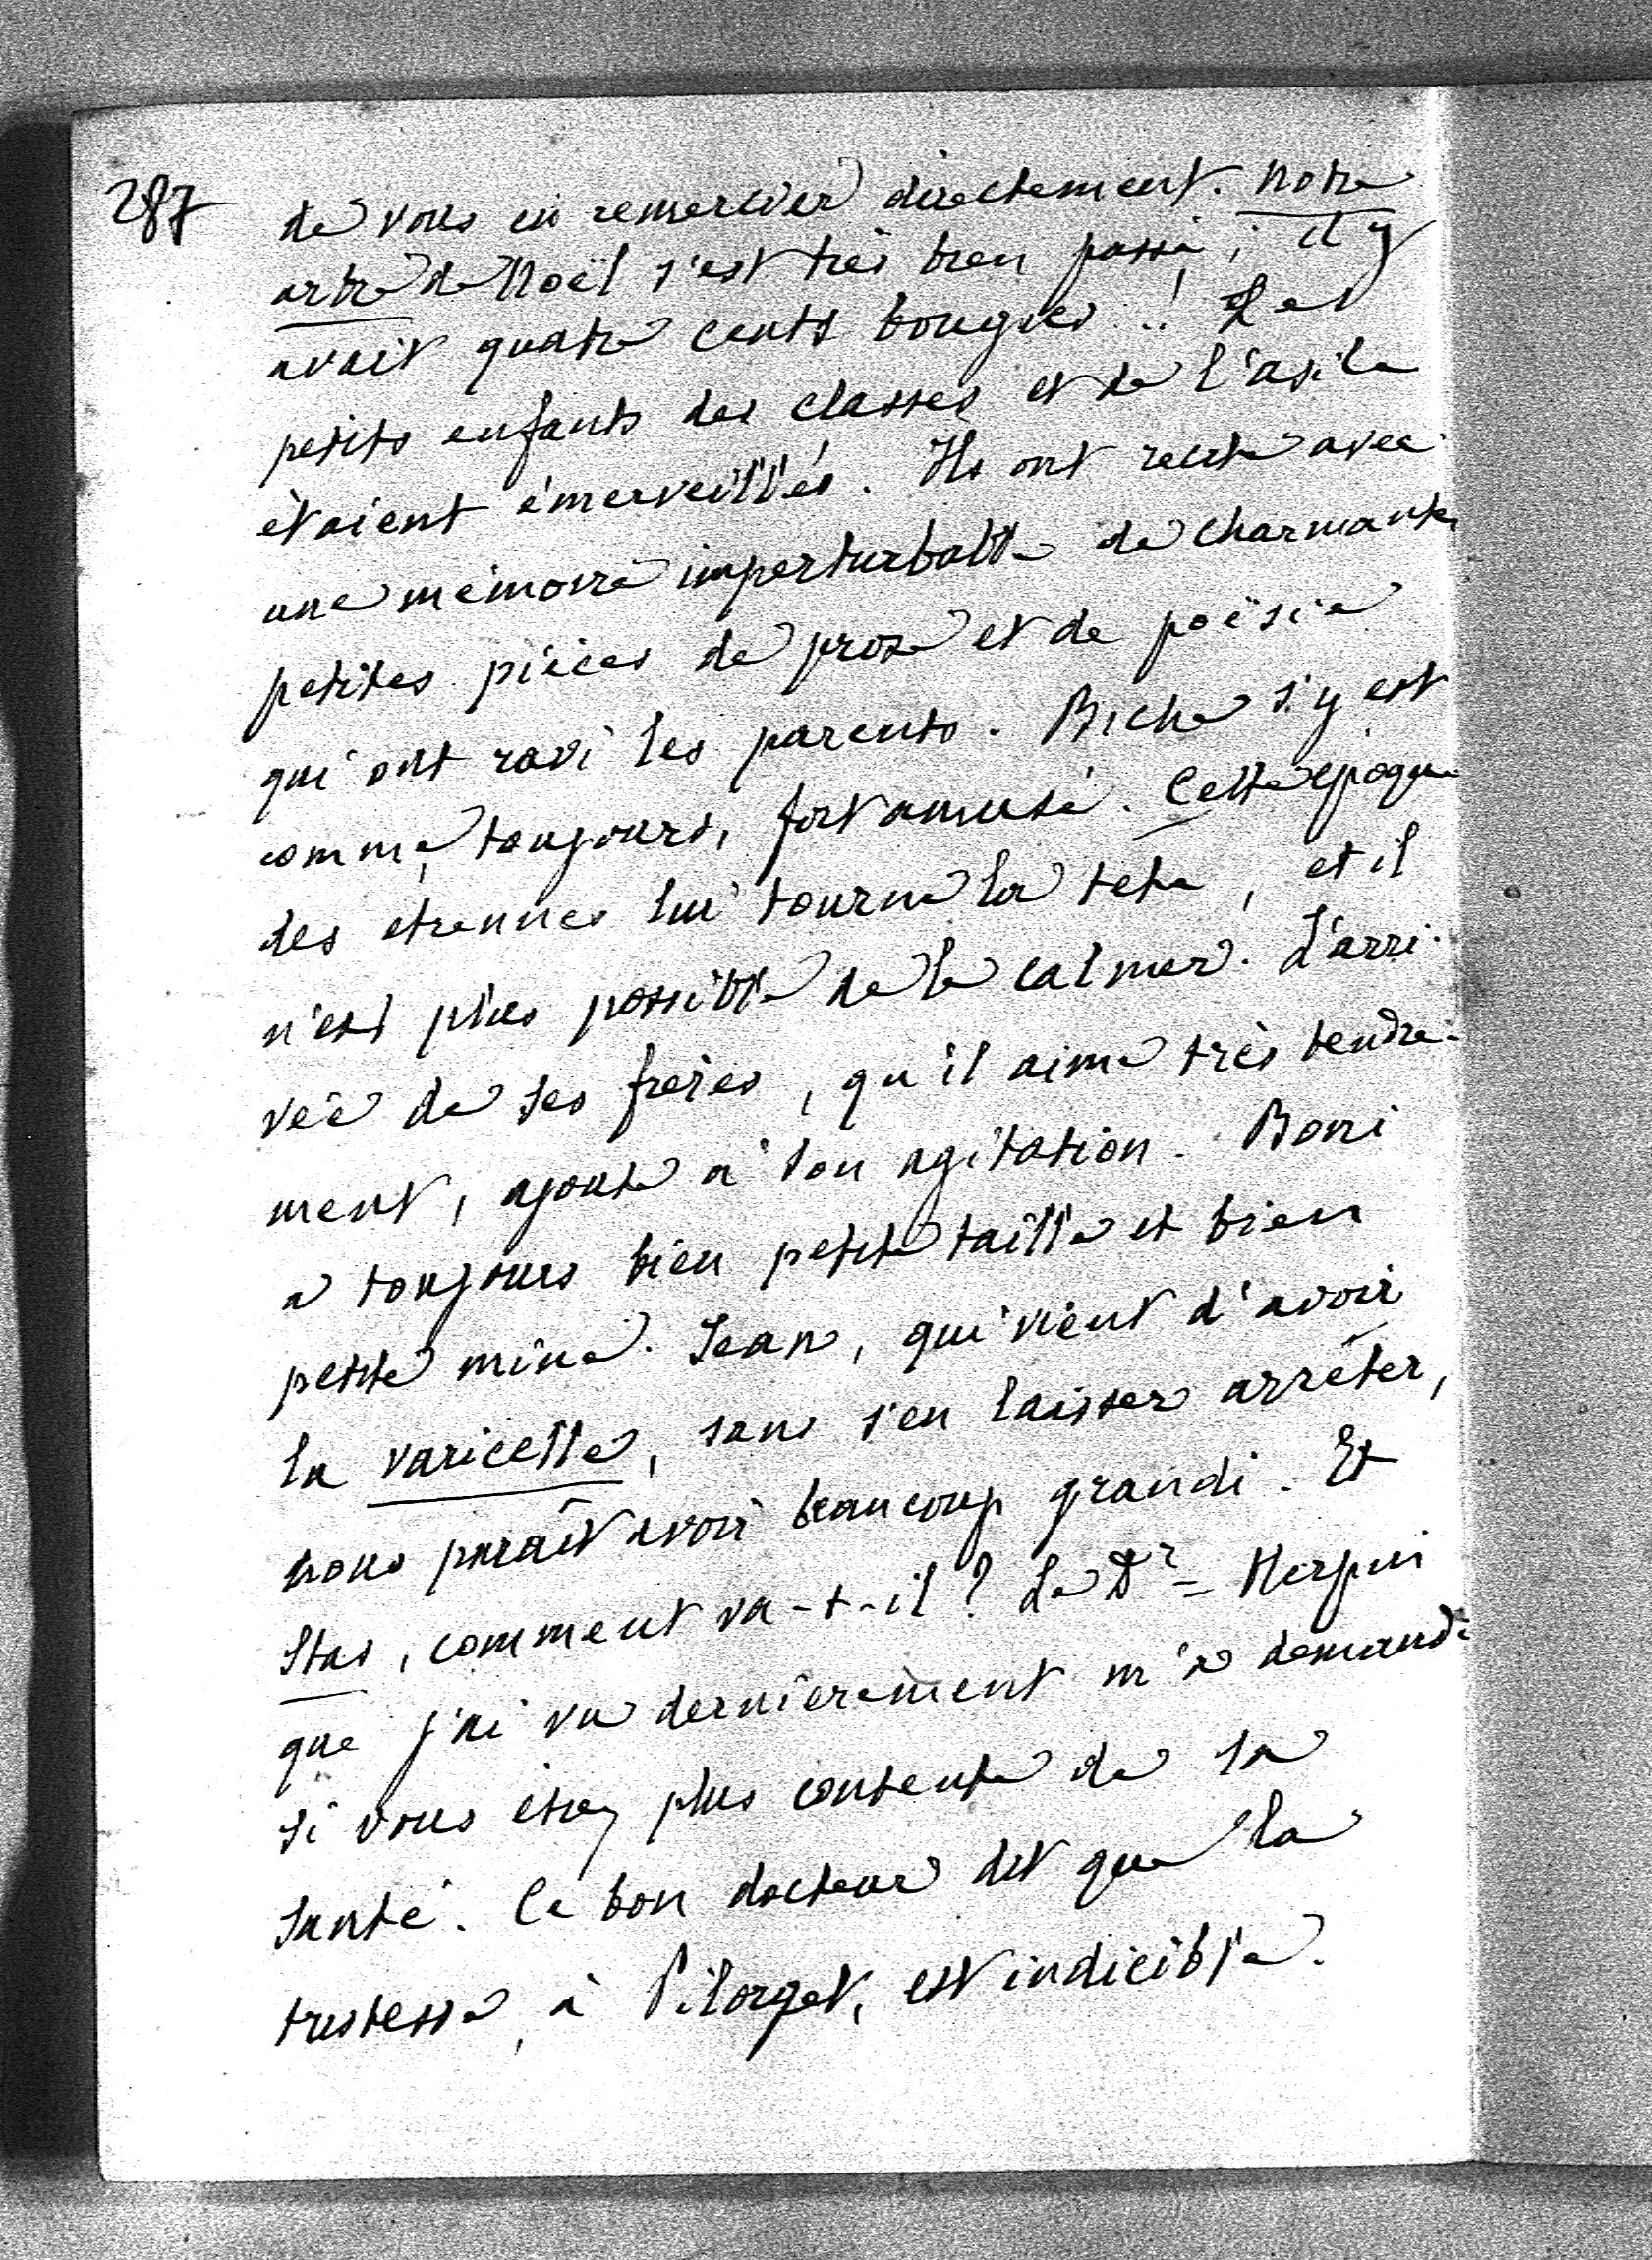 287
de vous en remercier directement. Notre
arbre de Noël s'est très bien passé ; il y
avait quatre cents bougies !! Les
petits enfants des classes et de l'asile
étaient émerveillés. Ils ont récité avec
une mémoire imperturbable de charmantes
petites pièces de prose et de poësie
qui ont ravi les parents. Biche s'y est
comme toujours, fort amusé. Cette époque
des etrennes lui tourne la tete, et il
n'est plus possible de le calmer. L'arri-
vée de ses frères, qu'il aime très tendre-
ment, ajoute à son agitation. Boni
a toujours bien petite taille et bien
petite mine. Jean, qui vient d'avoir
la varicelle, sans s'en laisser arrêter,
nous paraît avoir beaucoup grandi. Et
Stas, comment va-t-il ? Le Dr Herpin
que j'ai vu dernièrement m'a demandé
si vous étiez plus contente de sa
santé. Ce bon docteur dit que la
tristesse, à Pilorget, est indicible.